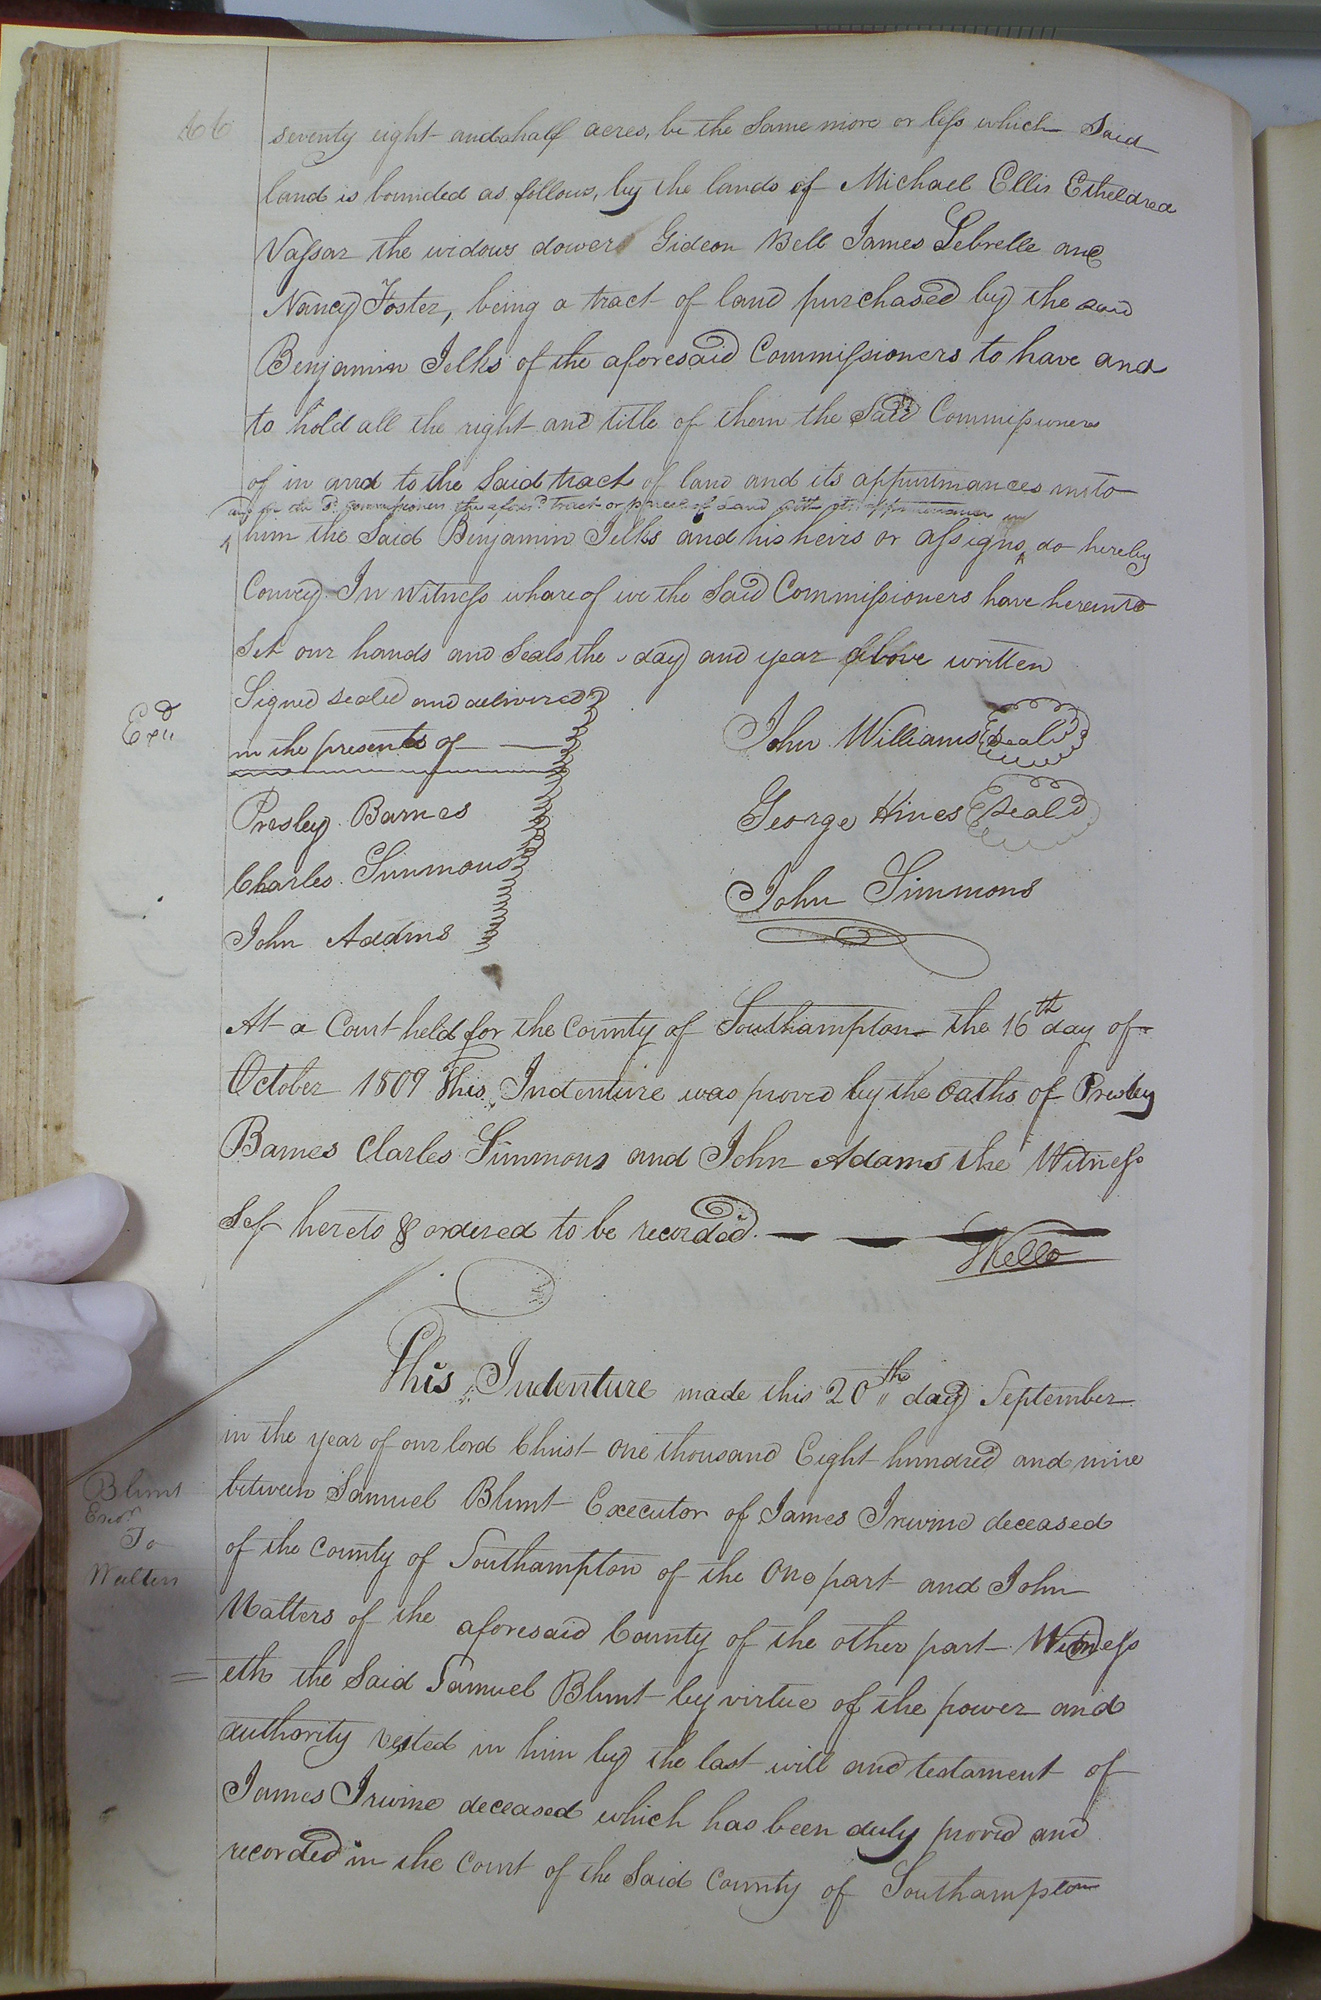 66
seventy eight and a half acres, be the same more or less which Said
land is bounded as follows, by the lands of Michael Ellis Etheldred
Vassar the widows dower Gideon Bell James Sebrelle and
Nancy Foster, being a tract of land purchased by the said
Benjamin Jelks of the aforesaid Commissioners to have and
to hold all the right and title of them the Said Commissioners
of in and to the Said tract of land and its appurtinances unto
the sd. Commissioners the aforsd. tract or parcel of Land with its appurtenances
him the Said Benjamin Jelks and his heirs or assigns do hereby
Convey. In Witness whareof we the Said Commissioners have hereunto
Set our hands and Seals the day and year above written
Signed sealed and delivered
in the presents of
Exd.
John Williams Seal
George Hines Seal
John Simmons
Presley Barnes
Charles Simmons
John Adams
At a Court held for the County of Southampton the 16th day of
October 1809 This Indenture was proved by the Oaths of Presley
Barnes Charles Simmons and John Adams the Witness
ses hereto & ordered to be recorded.
SKello
This Indenture made this 20th day September
in the year of our lord Christ one thousand Eight hundred and nine
between Samuel Blunt Executor of James Irwine deceased
of the County of Southampton of the One part and John
Watters of the aforesaid County of the other part Witness
eth the Said Samuel Blunt by virtue of the power and
authority vested in him by the last will and testament of
James Irwine deceased which has been duly proved and
recorded in the Court of the Said County of Southampton
Blunt
Exor.
To